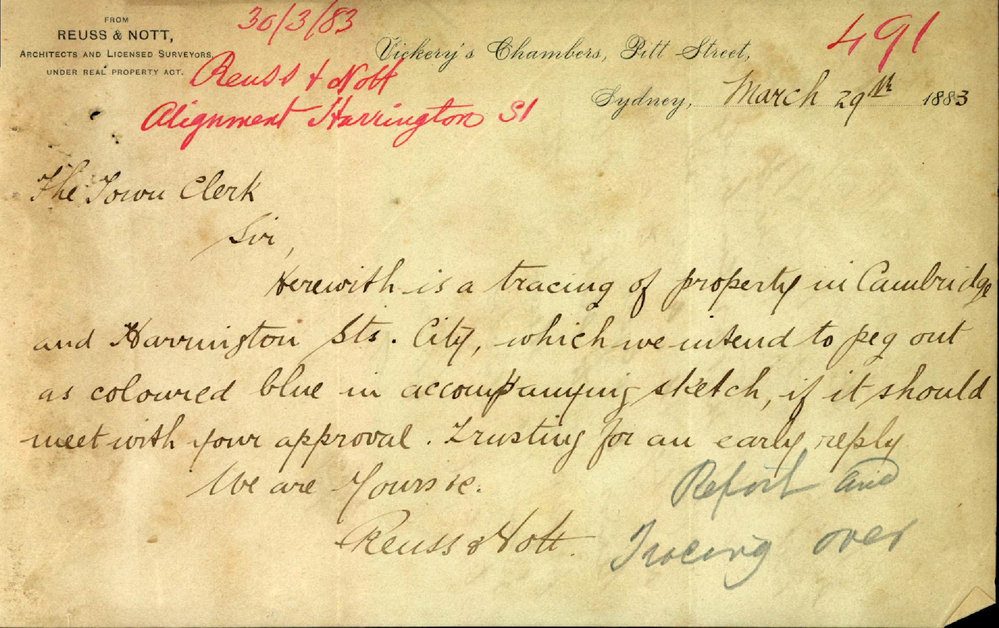 FROM
REUSS & NOTT,
ARCHITECTS AND LICENSED SURVEYORS,
UNDER REAL PROPERTY ACT.
30/3/83
Reuss & Nott
Alignment Harrington St
491
Vickery's Chambers, Pitt Street,
Sydney, March 29th 1883
The Town Clerk
Sir,
Herewith is a tracing of property in Cambridge
and Harrington Sts. City, which we intend to peg out
as coloured blue in accompanying sketch, if it should
meet with your approval. Trusting for an early reply
We are Yours &c.
Reuss & Nott.
Report and
Tracing over